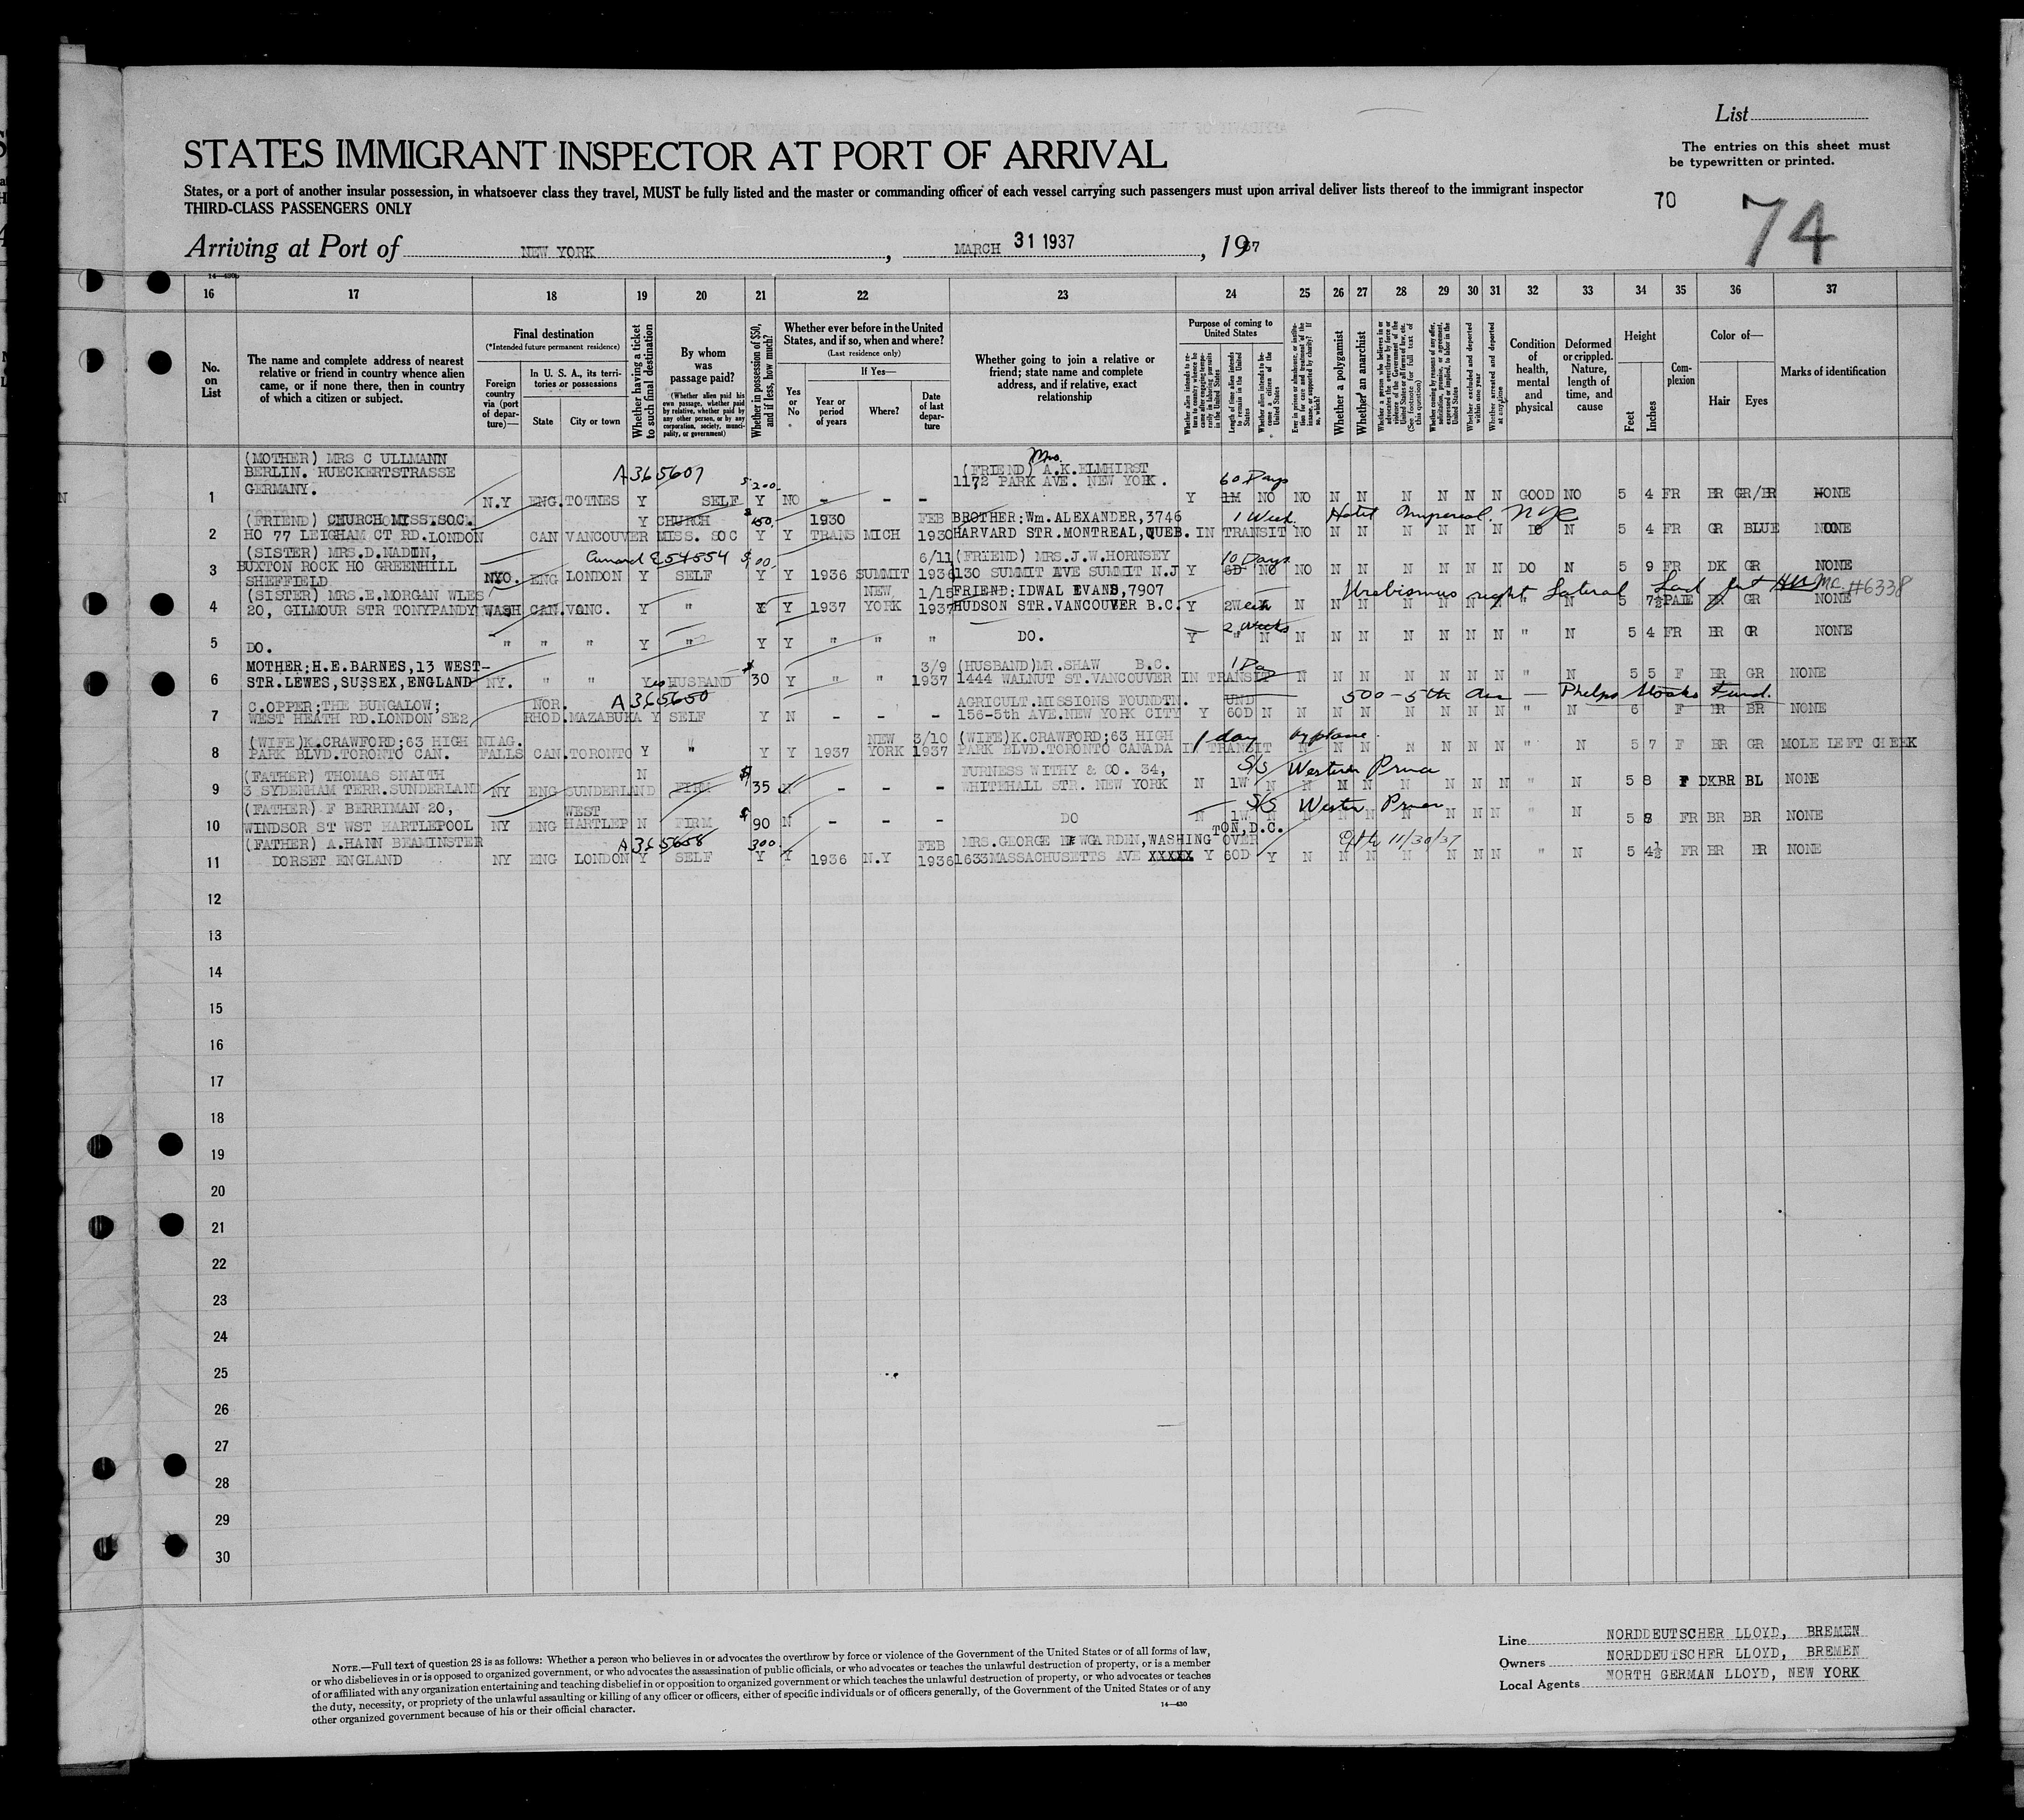 List
STATES IMMIGRANT INSPECTOR AT PORT OF ARRIVAL
The entries on this sheet must
be typewritten or printed.
States, or a port of another insular possession, in whatsoever class they travel, MUST be fully listed and the master or commanding officer of each vessel carrying such passengers must upon arrival deliver lists thereof to the immigrant inspector
THIRD-CLASS PASSENGERS ONLY
70
74
Arriving at Port of NEW YORK , MARCH 31 1937 , 1937
16 17 18 19 20 21 22 23 24 25 26 27 28 29 30 31 32 33 34 35 36 37
No. on List
The name and complete address of nearest relative or friend in country whence alien came, or if none there, then in country of which a citizen or subject.
Final destination
(*Intended future permanent residence)
Foreign country via (port of departure)—
In U. S. A., its territories or possessions
State
City or town
Whether having a ticket to such final destination
By whom was passage paid?
(Whether alien paid his own passage, whether paid by relative, whether paid by any other person, or by any corporation, society, municipality, or government)
Whether in possession of $50, and if less, how much?
Whether ever before in the United States, and if so, when and where?
(Last residence only)
Yes or No
If Yes—
Year or period of years
Where?
Date of last departure
Whether going to join a relative or friend; state name and complete address, and if relative, exact relationship
Purpose of coming to United States
Length of time alien intends to remain in the United States
Whether alien intends to become a citizen of the United States
Whether a polygamist
Whether an anarchist
Whether excluded and deported within one year
Whether arrested and deported at any time
Condition of health, mental and physical
Deformed or crippled. Nature, length of time, and cause
Height
Feet
Inches
Complexion
Color of—
Hair
Eyes
Marks of identification
(MOTHER) MRS C ULLMANN
BERLIN. RUECKERTSTRASSE A365607 $200. (FRIEND) Mrs. A.K.ELMHIRST 60 Days
GERMANY. 1172 PARK AVE. NEW YORK.
1 N.Y ENG. TOTNES Y SELF Y NO - - - Y 1M NO NO N N N N N N GOOD NO 5 4 FR BR GR/BR NONE
(FRIEND) CHURCH MISS.SOC. Y CHURCH $150. 1930 FEB BROTHER:Wm.ALEXANDER,3746 1 Week. Hotel Imperial. NYC
2 HO 77 LEIGHAM CT RD.LONDON CAN VANCOUVER MISS. SOC Y Y TRANS MICH 1930 HARVARD STR.MONTREAL,QUEB. IN TRANSIT NO N N N N N N DO N 5 4 FR GR BLUE NONE
(SISTER) MRS.D.NADIN, Cunard E54854 6/11 (FRIEND) MRS.J.W.HORNSEY 10 Days
3 BUXTON ROCK HO GREENHILL NYO. ENG LONDON Y SELF Y Y 1936 SUMMIT 1936 130 SUMMIT AVE SUMMIT N.J Y 6D NO NO N N N N N N DO N 5 9 FR DK GR NONE
SHEFFIELD
(SISTER) MRS.E.MORGAN WLES NEW 1/15 FRIEND:IDWAL EVANS,7907 right lateral #6338
4 20, GILMOUR STR TONYPANDY WASH CAN.VANC. Y " Y Y 1937 YORK 1937 HUDSON STR.VANCOUVER B.C. Y 2week N N N N N N N N " N 5 7½ PALE BR GR NONE
2 weeks
5 DO. " " " Y " Y Y " " " DO. Y " N N N N N N N N " N 5 4 FR BR GR NONE
MOTHER:H.E.BARNES,13 WEST- $ 3/9 (HUSBAND)MR.SHAW B.C. 1 Day
6 STR.LEWES,SUSSEX,ENGLAND NY. " " Yes HUSBAND 30 Y " " 1937 1444 WALNUT ST.VANCOUVER IN TRANSIT N N N N N N N " N 5 5 F BR GR NONE
C.OPPER;THE BUNGALOW; NOR. A365650 AGRICULT.MISSIONS FOUNDTN. UND 500 - 5th Ave — Phelps Stokes Fund.
7 WEST HEATH RD.LONDON SE2, RHOD.MAZABUKA Y SELF Y N - - - 156-5th AVE.NEW YORK CITY Y 60D N N N N N N N N " N 6 F BR BR NONE
(WIFE)K.CRAWFORD;63 HIGH NIAG. NEW 3/10 (WIFE)K.CRAWFORD;63 HIGH 1 day
8 PARK BLVD.TORONTO CAN. FALLS CAN.TORONTO Y " Y Y 1937 YORK 1937 PARK BLVD.TORONTO CANADA IN TRANSIT N N N N N N N " N 5 7 F BR GR MOLE LEFT CHEEK
(FATHER) THOMAS SNAITH N $ FURNESS WITHY & CO. 34, S/S Western Prince
9 3 SYDENHAM TERR.SUNDERLAND NY ENG SUNDERLAND FIRM 35 N - - - WHITEHALL STR. NEW YORK N 1W N N N N N N N N " N 5 8 F DKBR BL NONE
(FATHER) F BERRIMAN 20, WEST $ S/S Western Prince
10 WINDSOR ST WST HARTLEPOOL NY ENG HARTLEP N FIRM 90 N - - - DO N 1W N N N N N N N N " N 5 8 FR BR BR NONE
(FATHER) A.HANN BEAMINSTER A365658 300. FEB MRS.GEORGE NEWGARDEN,WASHINGTON,D.C. OVER 11/30/37
11 DORSET ENGLAND NY ENG LONDON Y SELF Y Y 1936 N.Y 1936 1633MASSACHUSETTS AVE XXXXX Y 60D Y N N N N N N N " N 5 4½ FR BR BR NONE
12
13
14
15
16
17
18
19
20
21
22
23
24
25
26
27
28
29
30
NOTE.—Full text of question 28 is as follows: Whether a person who believes in or advocates the overthrow by force or violence of the Government of the United States or of all forms of law,
or who disbelieves in or is opposed to organized government, or who advocates the assassination of public officials, or who advocates or teaches the unlawful destruction of property, or is a member
of or affiliated with any organization entertaining and teaching disbelief in or opposition to organized government or which teaches the unlawful destruction of property, or who advocates or teaches
the duty, necessity, or propriety of the unlawful assaulting or killing of any officer or officers, either of specific individuals or of officers generally, of the Government of the United States or of any
other organized government because of his or their official character.
14—430
Line NORDDEUTSCHER LLOYD, BREMEN
Owners NORDDEUTSCHER LLOYD, BREMEN
Local Agents NORTH GERMAN LLOYD, NEW YORK